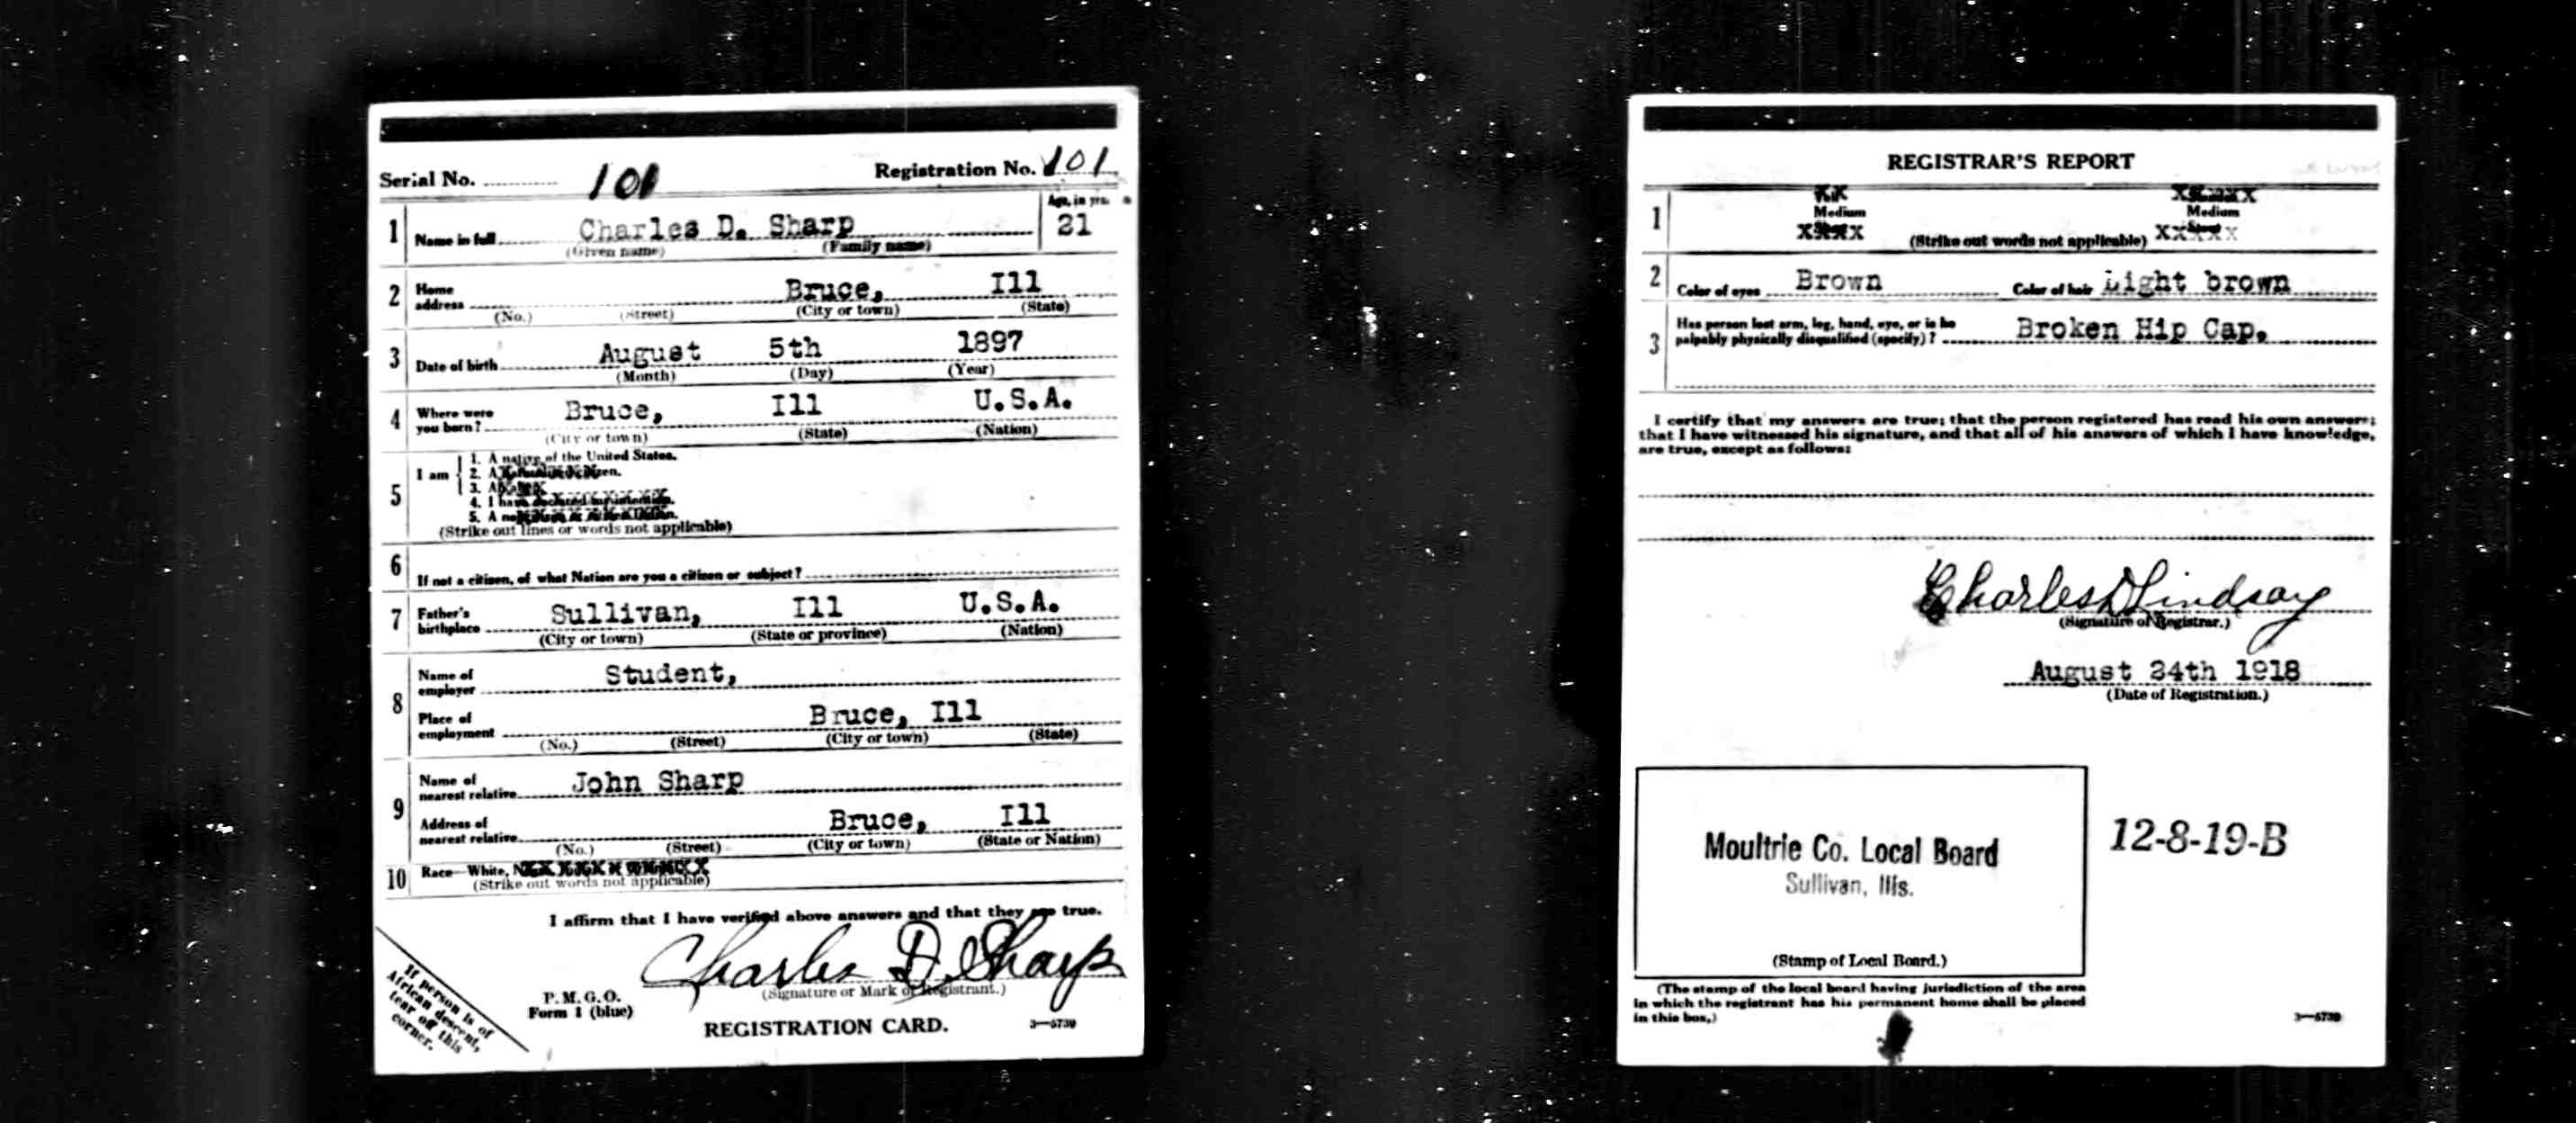 Serial No. 101 Registration No. 101
1 Name in full Charles D. Sharp Age, in yrs. 21
(Given name) (Family name)
2 Home address Bruce, Ill
(No.) (Street) (City or town) (State)
3 Date of birth August 5th 1897
(Month) (Day) (Year)
4 Where were you born? Bruce, Ill U.S.A.
(City or town) (State) (Nation)
5 I am
1. A native of the United States.
2. A citizen.
3. A
4. I have
5. A
(Strike out lines or words not applicable)
6 If not a citizen, of what Nation are you a citizen or subject?
7 Father's birthplace Sullivan, Ill U.S.A.
(City or town) (State or province) (Nation)
8 Name of employer Student,
Place of employment Bruce, Ill
(No.) (Street) (City or town) (State)
9 Name of nearest relative John Sharp
Address of nearest relative Bruce, Ill
(No.) (Street) (City or town) (State or Nation)
10 Race—White,
(Strike out words not applicable)
I affirm that I have verified above answers and that they are true.
Charles D. Sharp
(Signature or Mark of Registrant.)
P. M. G. O.
Form 1 (blue)
REGISTRATION CARD. 3—5739
If person is of
African descent,
tear off this
corner.
REGISTRAR'S REPORT
1 Medium Medium
(Strike out words not applicable)
2 Color of eyes Brown Color of hair Light brown
3 Has person lost arm, leg, hand, eye, or is he
palpably physically disqualified (specify)? Broken Hip Cap.
I certify that my answers are true; that the person registered has read his own answers;
that I have witnessed his signature, and that all of his answers of which I have knowledge,
are true, except as follows:
Charles D Lindsay
(Signature of Registrar.)
August 24th 1918
(Date of Registration.)
Moultrie Co. Local Board
Sullivan, Ills.
12-8-19-B
(Stamp of Local Board.)
(The stamp of the local board having jurisdiction of the area
in which the registrant has his permanent home shall be placed
in this box.)
3—5739